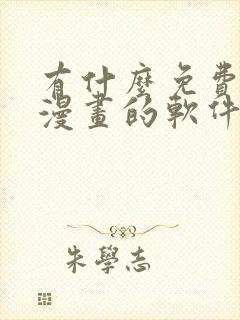 有什麼免費
漫畫的軟件
朱學志